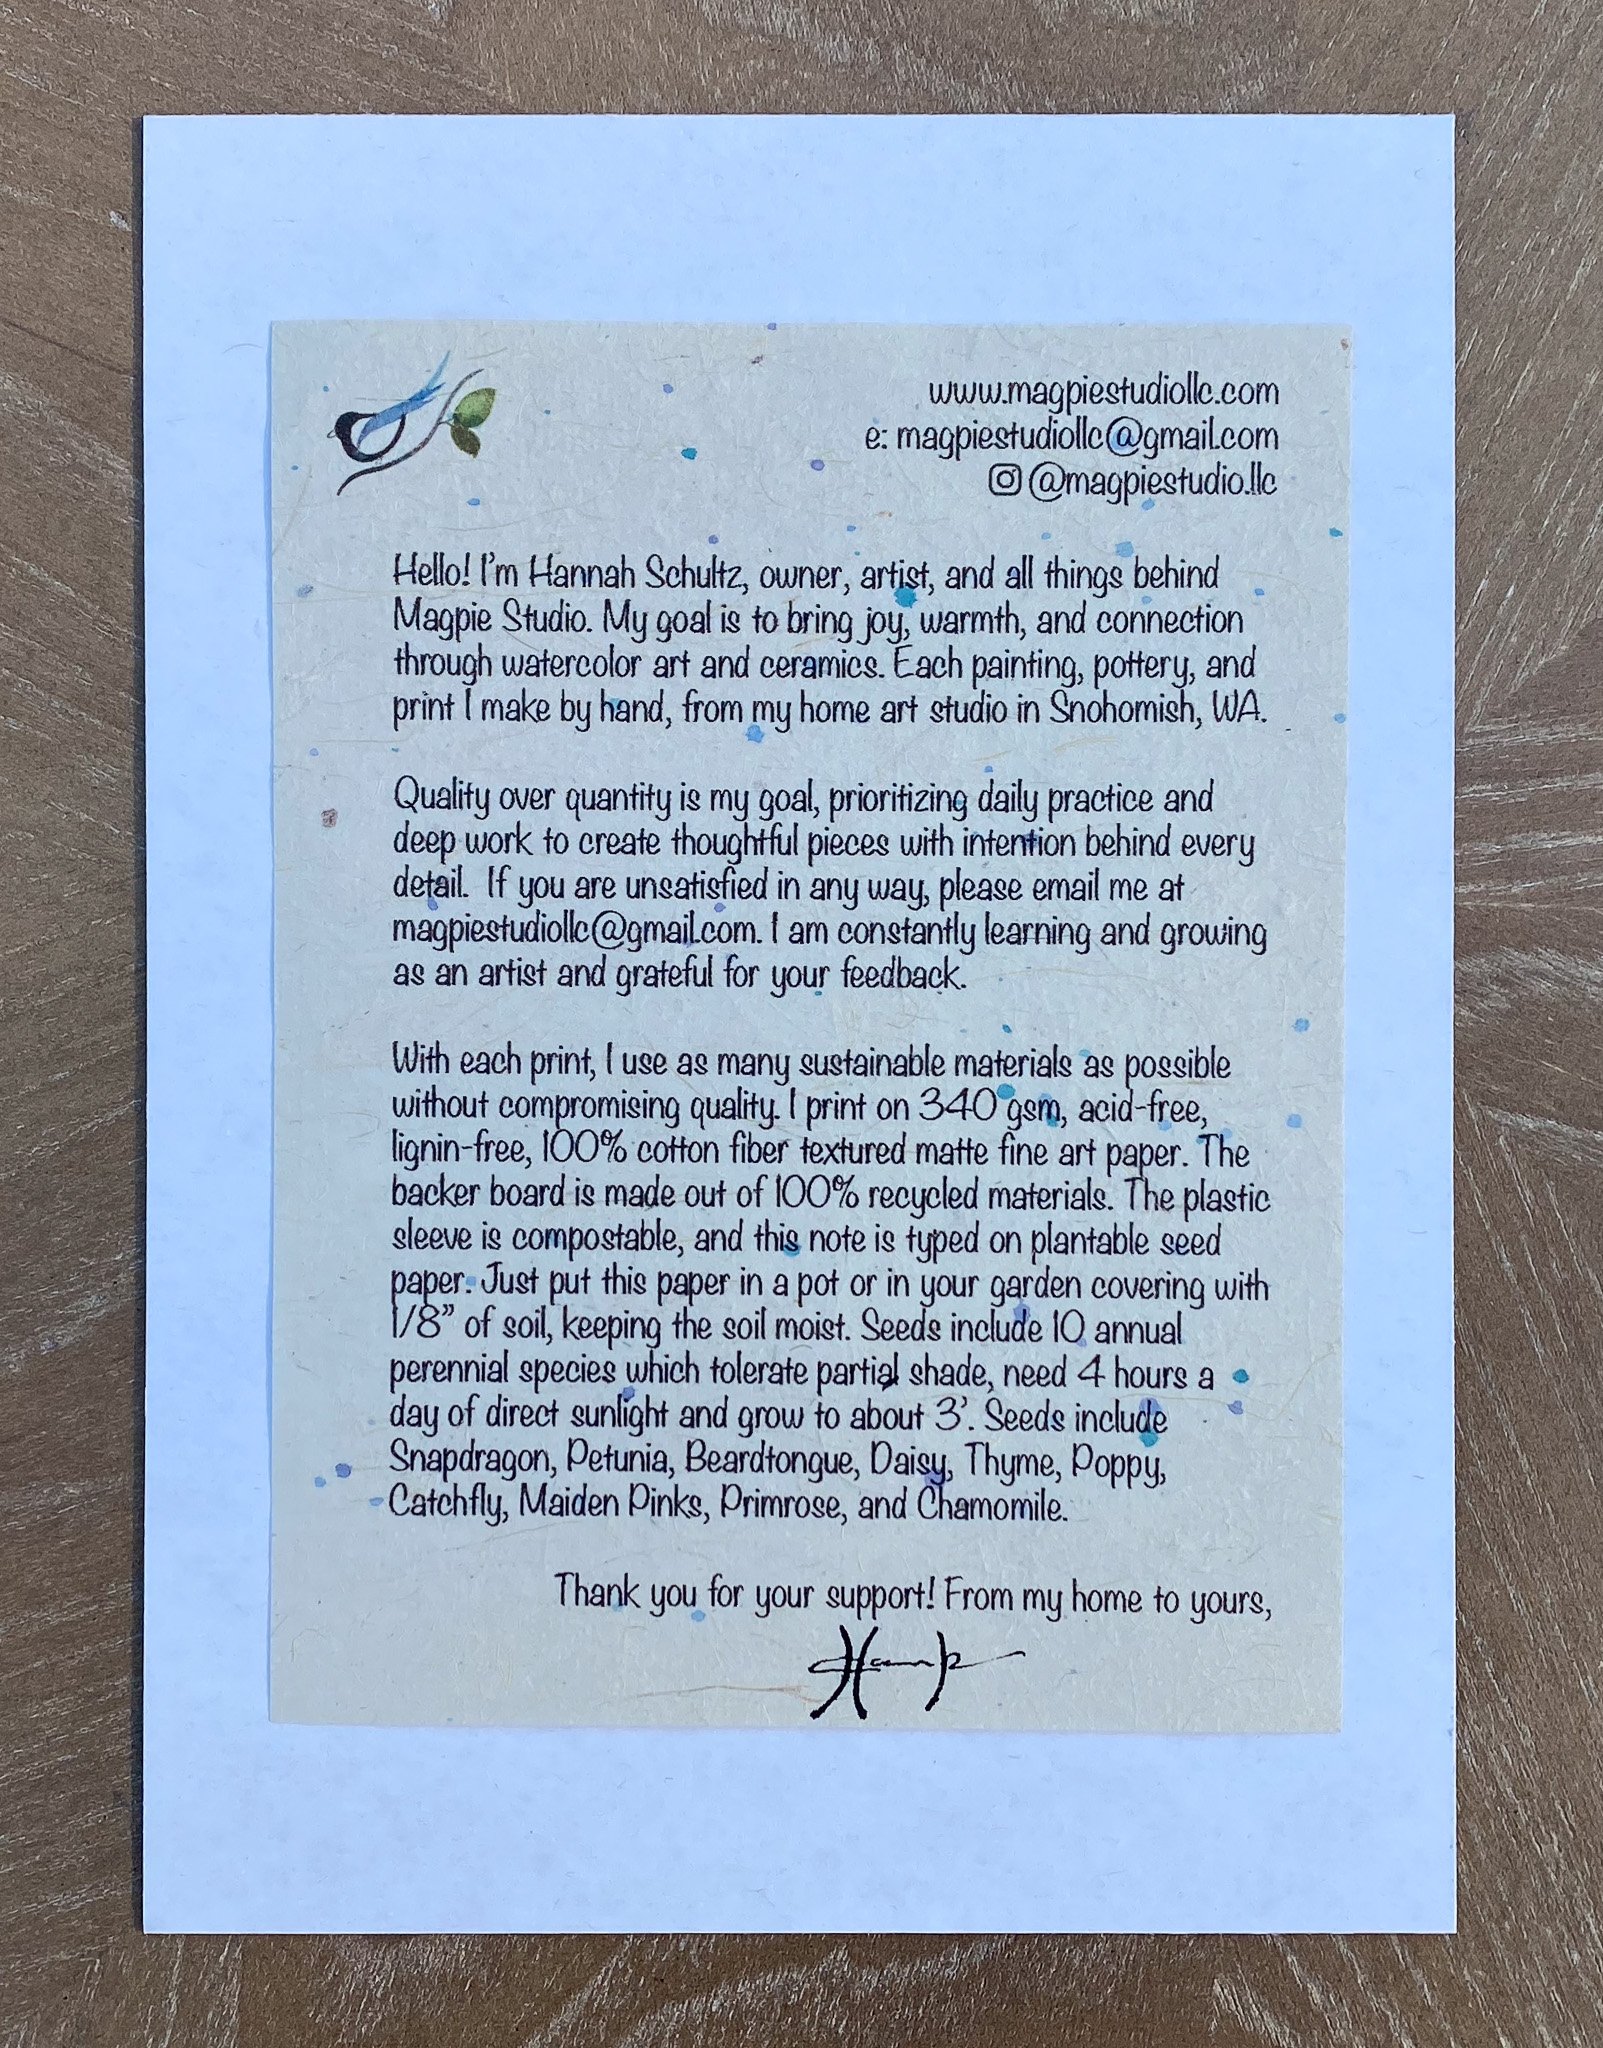 www.magpiestudiollc.com
e: magpiestudiollc@gmail.com
@magpiestudio.llc
Hello! I'm Hannah Schultz, owner, artist, and all things behind
Magpie Studio. My goal is to bring joy, warmth, and connection
through watercolor art and ceramics. Each painting, pottery, and
print I make by hand, from my home art studio in Snohomish, WA.
Quality over quantity is my goal, prioritizing daily practice and
deep work to create thoughtful pieces with intention behind every
detail. If you are unsatisfied in any way, please email me at
magpiestudiollc@gmail.com. I am constantly learning and growing
as an artist and grateful for your feedback.
With each print, I use as many sustainable materials as possible
without compromising quality. I print on 340 gsm, acid-free,
lignin-free, 100% cotton fiber textured matte fine art paper. The
backer board is made out of 100% recycled materials. The plastic
sleeve is compostable, and this note is typed on plantable seed
paper. Just put this paper in a pot or in your garden covering with
1/8” of soil, keeping the soil moist. Seeds include 10 annual
perennial species which tolerate partial shade, need 4 hours a
day of direct sunlight and grow to about 3'. Seeds include
Snapdragon, Petunia, Beardtongue, Daisy, Thyme, Poppy,
Catchfly, Maiden Pinks, Primrose, and Chamomile.
Thank you for your support! From my home to yours,